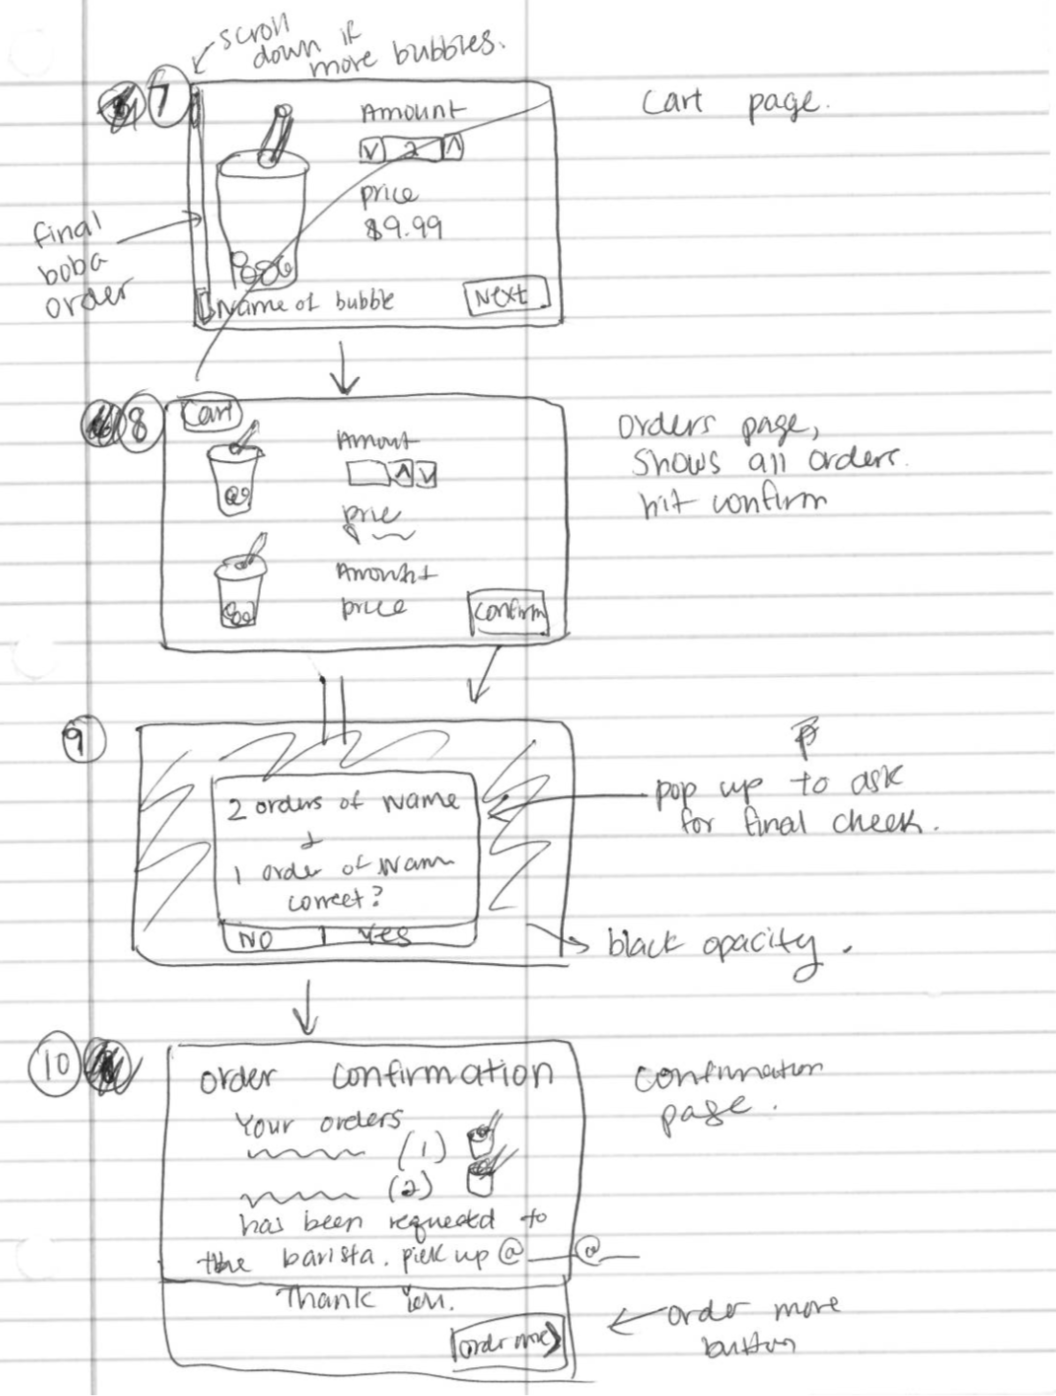 scroll
down if
more bubbles.
7
Amount
Cart page.
V 2 Λ
price
$9.99
final
boba
order
Name of bubble
Next
8
Cart
Amount
Λ V
price
Orders page,
Shows all orders.
hit confirm
Amount
price
Confirm
9
2 orders of Name
&
1 order of Name
correct?
NO YES
pop up to ask
for final check.
black opacity.
10
order confirmation
Your orders
(1)
(2)
has been requested to
the barista. pick up @ @
Thank You.
order more
confirmation
page.
order more
button